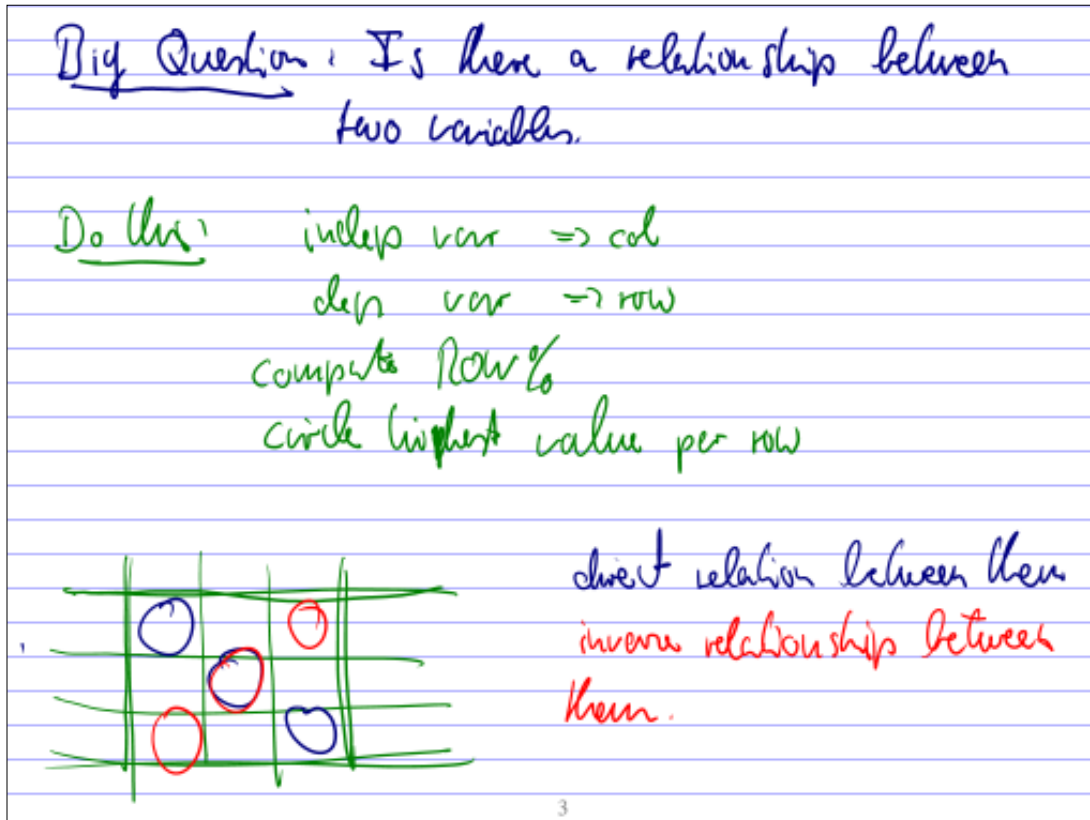 Big Question: Is there a relationship between
two variables.
Do this: indep var => col
dep var => row
compute ROW%
circle highest value per row
direct relation between them
inverse relationship between
them.
3